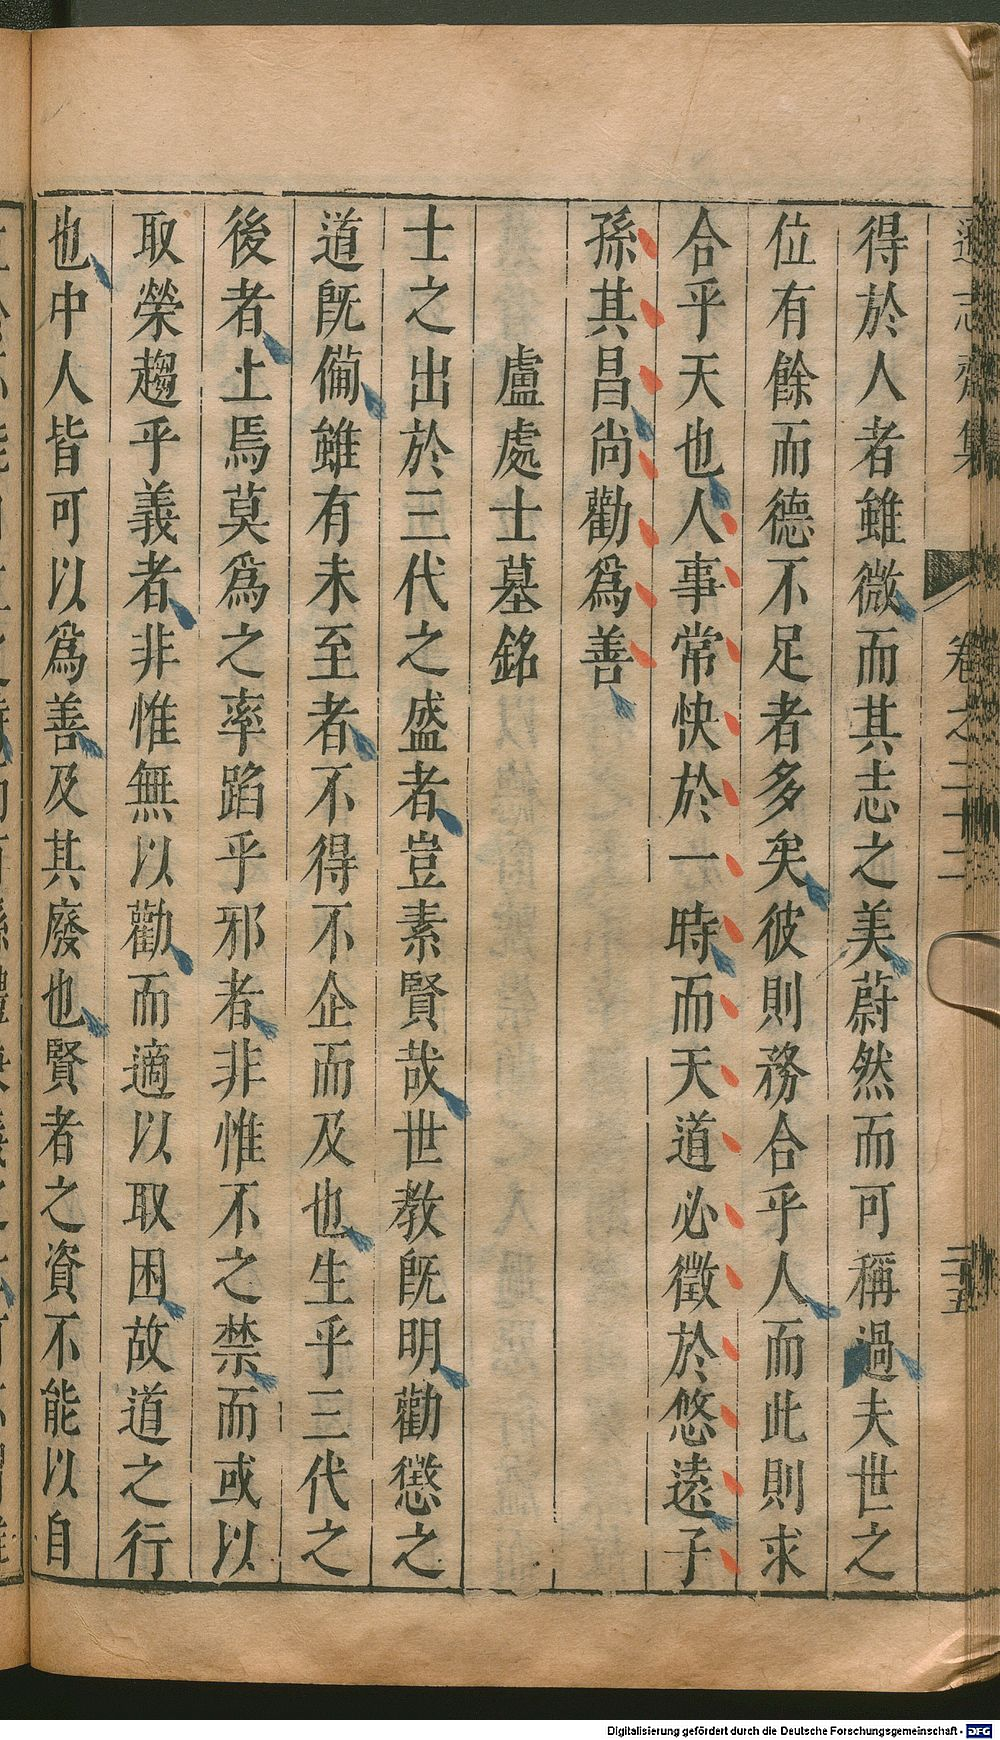 遜志齋集 卷之二十二 二十五
得於人者雖微而其志之美蔚然而可稱過夫世之
位有餘而德不足者多矣彼則務合乎人而此則求
合乎天也人事常快於一時而天道必徵於悠遠子
孫其昌尚勸爲善
盧處士墓銘
士之出於三代之盛者豈素賢哉世教既明勸懲之
道既備雖有未至者不得不企而及也生乎三代之
後者上焉莫爲之率蹈乎邪者非惟不之禁而或以
取榮趨乎義者非惟無以勸而適以取困故道之行
也中人皆可以爲善及其廢也賢者之資不能以自
Digitalisierung gefördert durch die Deutsche Forschungsgemeinschaft - DFG